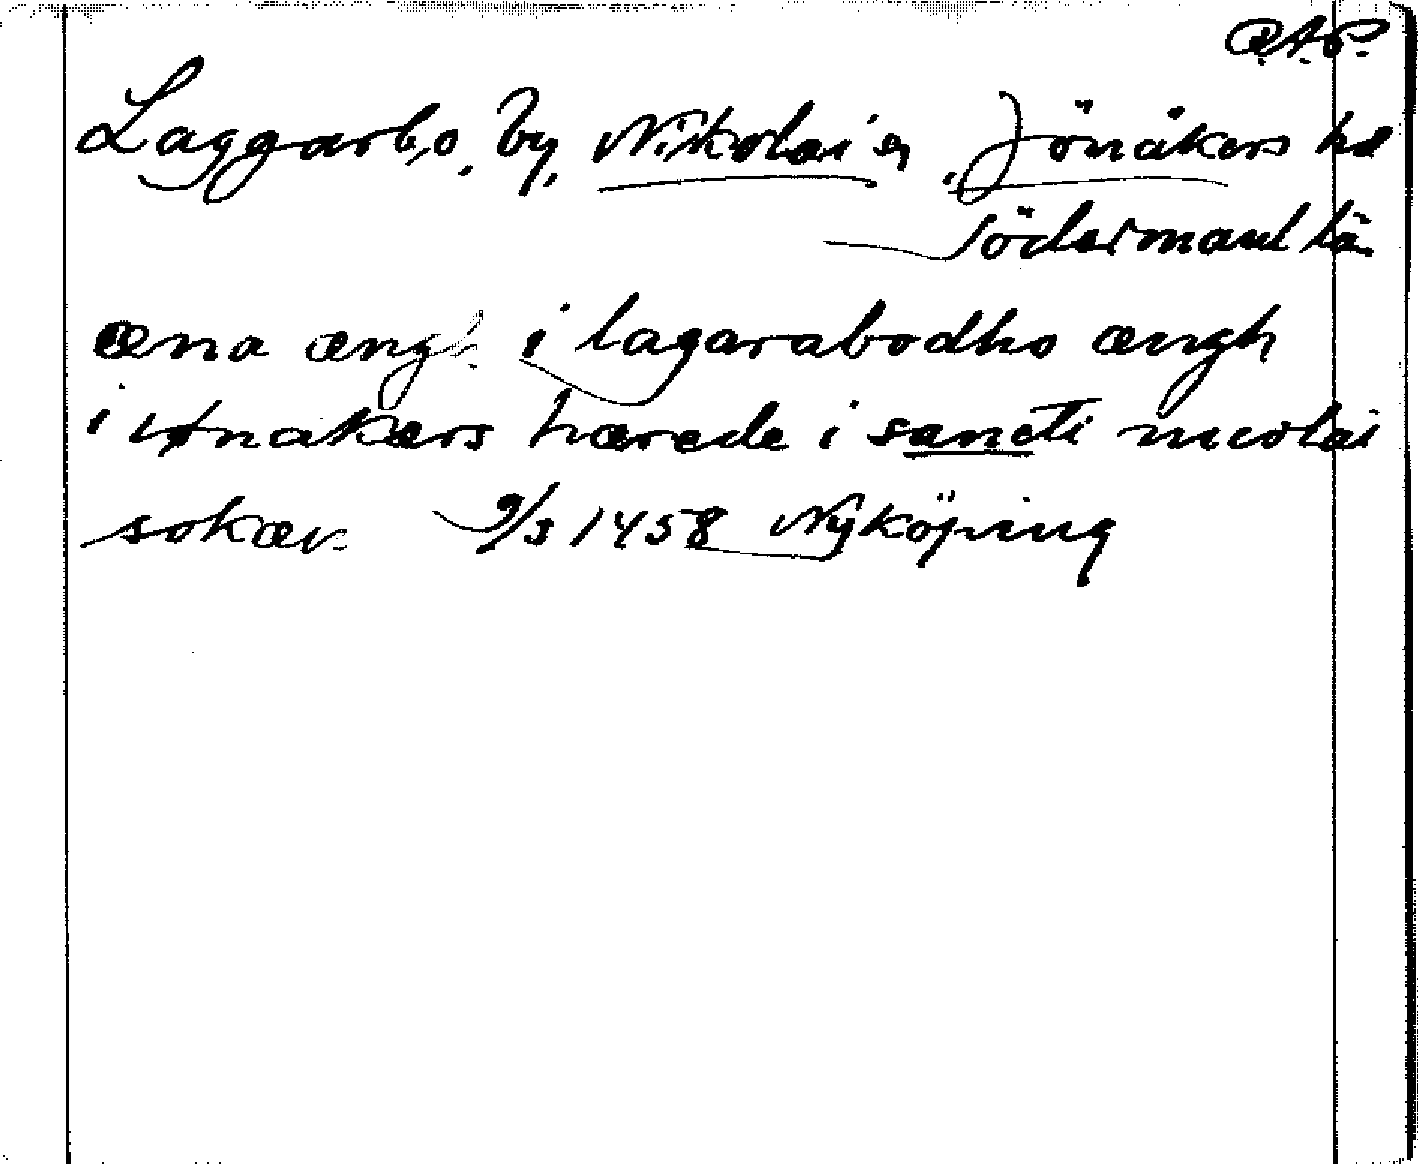 R.A.P.
Laggarbo, by, Nikolai sn, Jönåkers hd
Södermanl lä
æna ængh i lagarabodho ængh
i iønakærs hærede i sancti nicolai
soken 9/3 1458 Nyköping